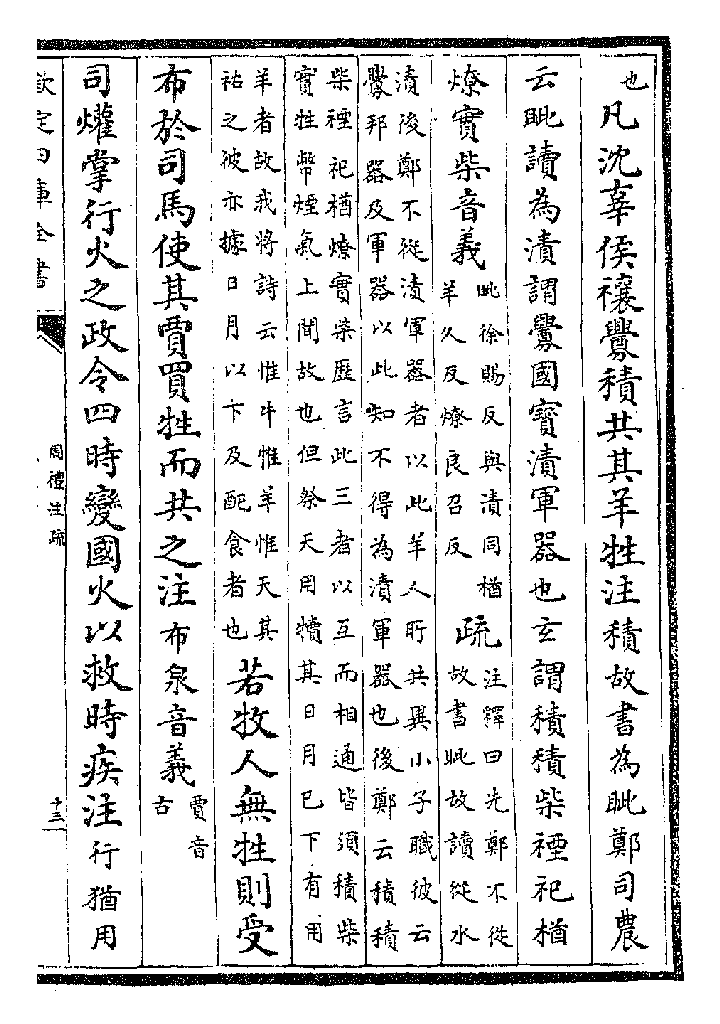 也凡沈辜侯禳釁積共其羊牲注積故書為眦鄭司農
云眦讀為漬謂釁國寶漬軍器也玄謂積積柴禋祀槱
燎實柴音義眦徐賜反與漬同槱
羊久反燎良召反疏注釋曰先鄭不從
故書眦故讀從水
漬後鄭不從漬軍器者以此羊人所共與小子職彼云
釁邦器及軍器以此知不得為漬軍器也後鄭云積積
柴禋祀槱燎實柴歷言此三者以互而相通皆須積柴
實牲幣煙氣上聞故也但祭天用犢其日月已下有用
羊者故我將詩云惟牛惟羊惟天其
祐之彼亦據日月以下及配食者也若牧人無牲則受
布於司馬使其賈買牲而共之注布泉音義賈音
古
司爟掌行火之政令四時變國火以救時疾注行猶用
欽定四庫全書
周禮注疏
十三